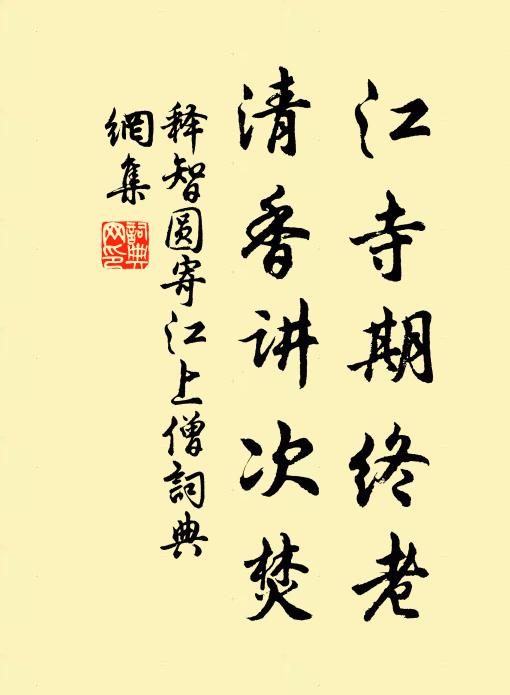 江寺期终老
清香讲次焚
释智圆寄江上僧詞典
網集
詞典
网印